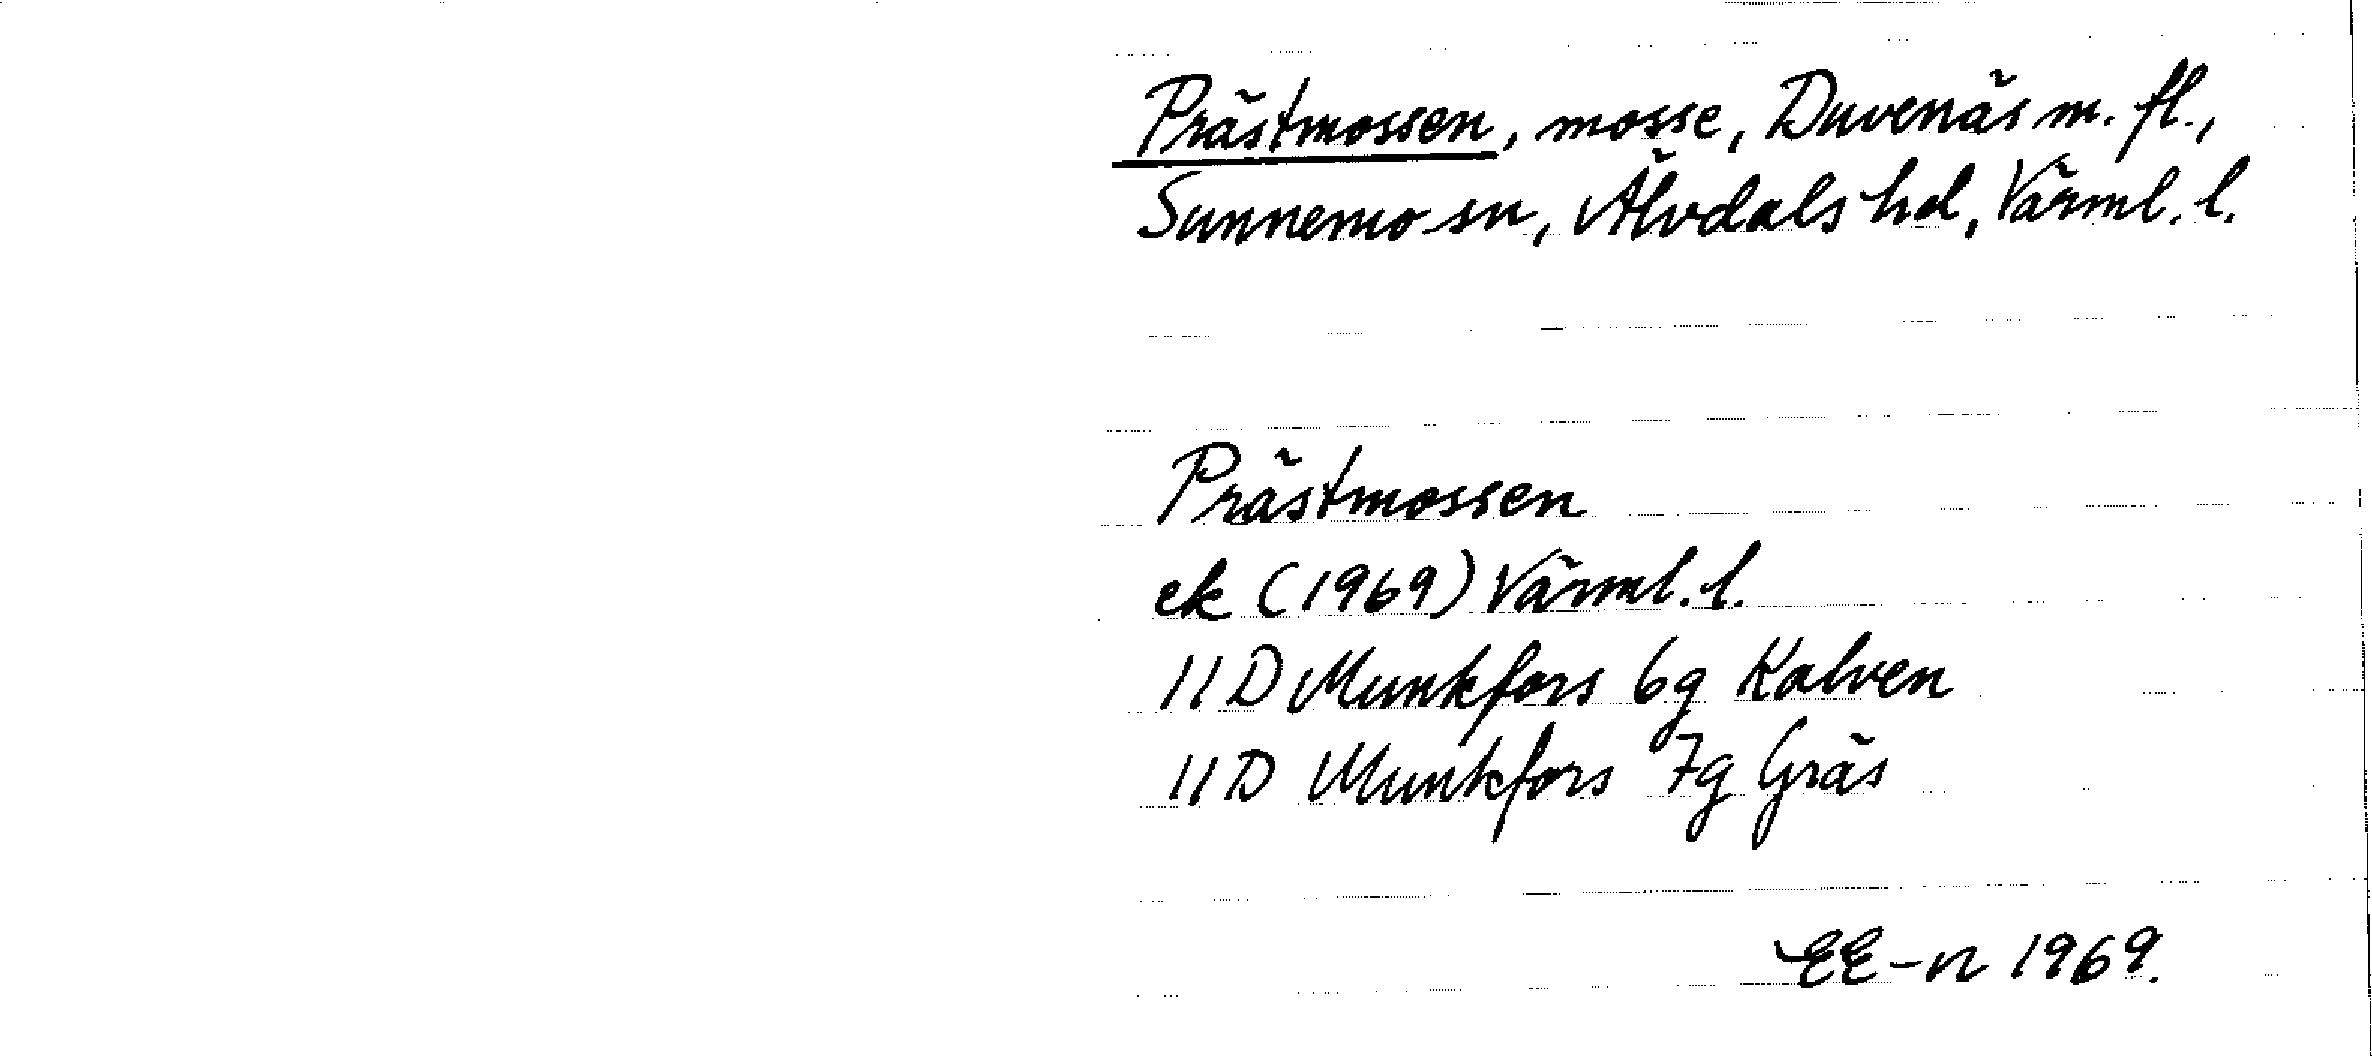 Prästmossen, mosse, Duvenäs m. fl.,
Sunnemo sn, Älvdals hd, Värml. l.
Prästmossen
ek (1969) Värml. l.
11 D Munkfors 6g Kalven
11 D Munkfors 7g Gräs
EE-n 1969.